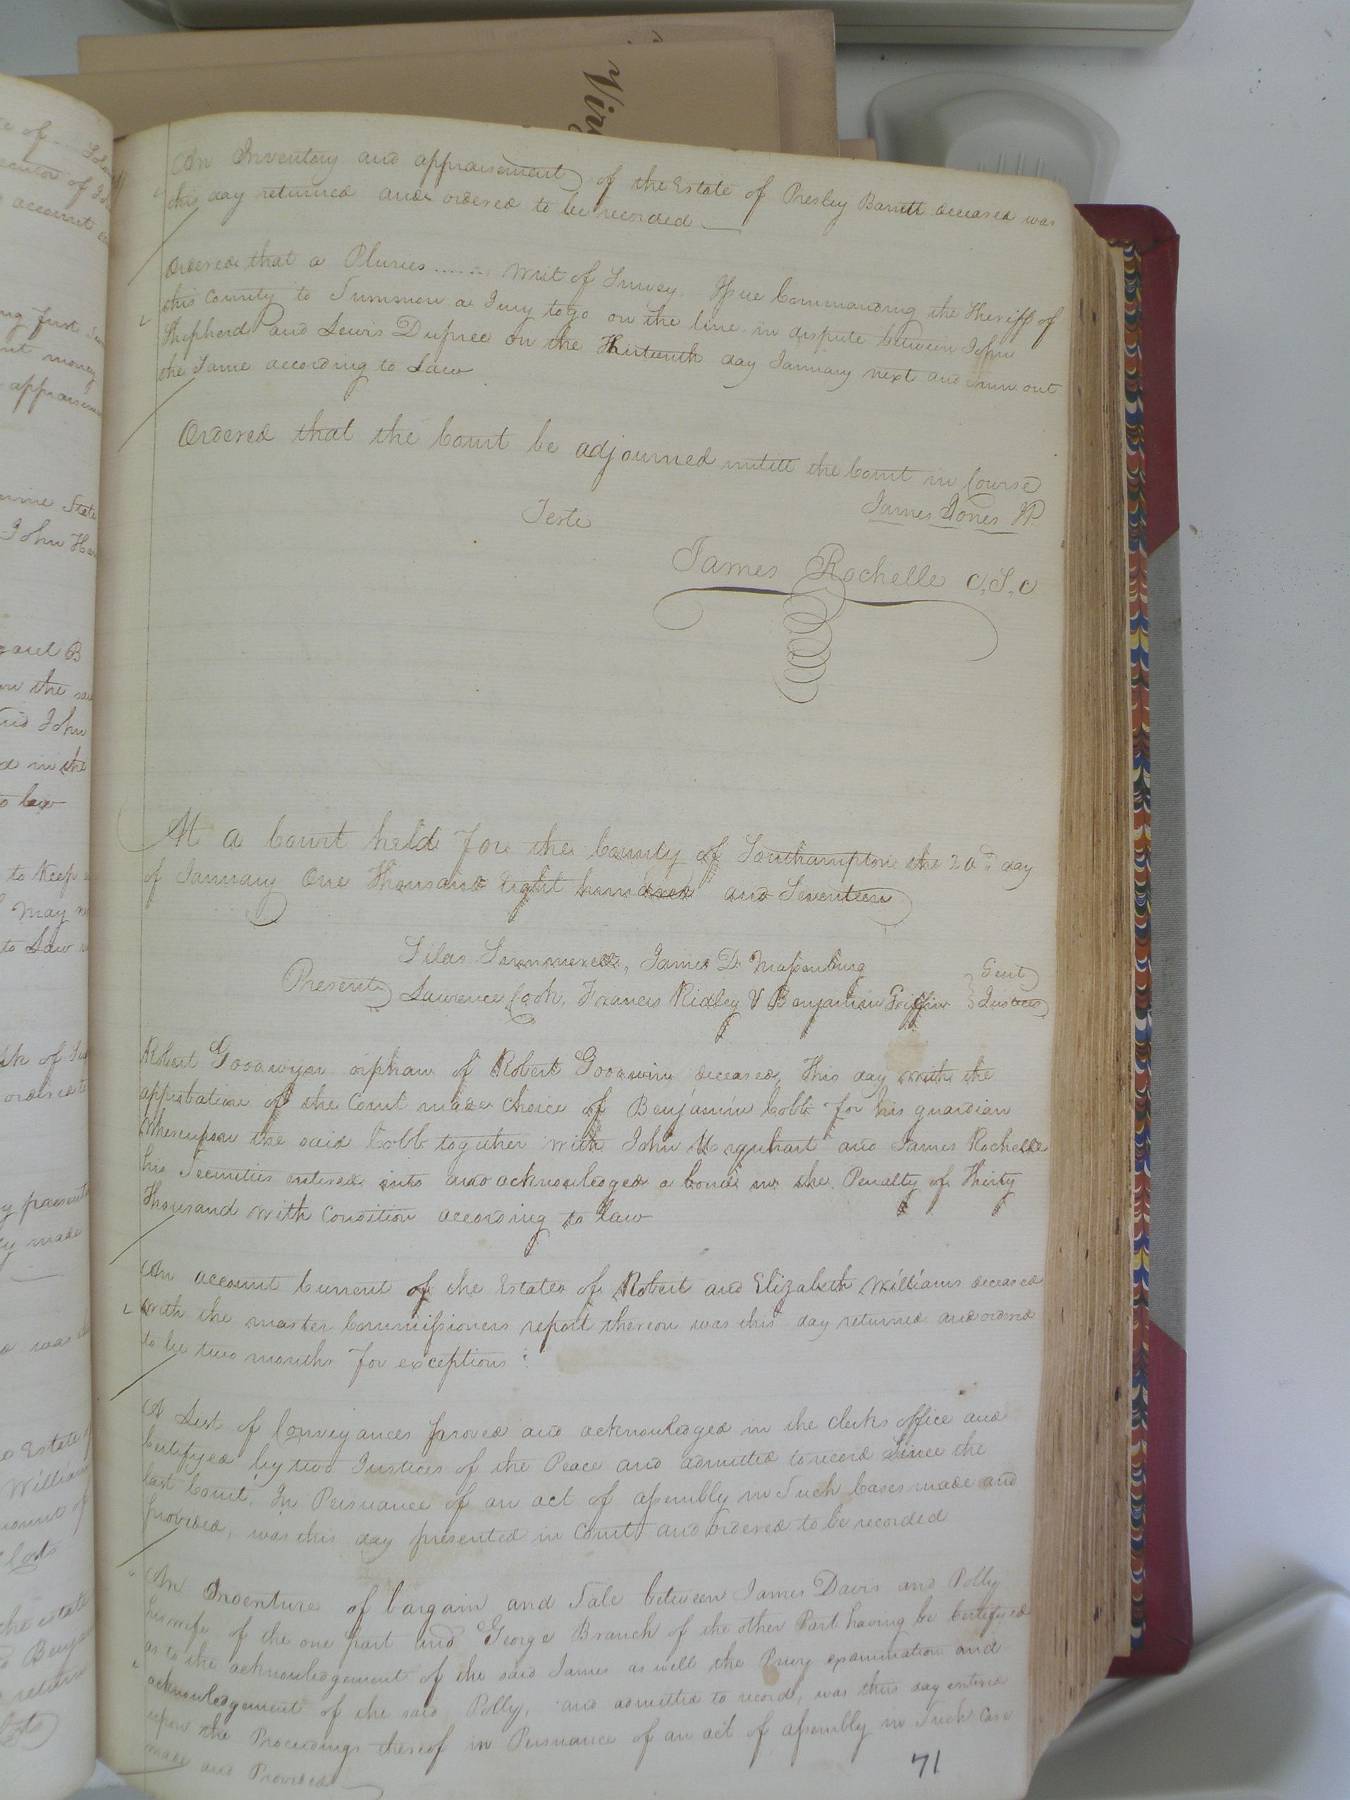 An Inventory and appraisement of the Estate of Presley Barrett deceased was
this day returned and ordered to be recorded
Ordered that a Pluries ...... writ of Survey Issue Commanding the Sheriff of
this County to Summon a Jury to go on the line in dispute between John
Shepherd and Lewis Dupree on the Thirteenth day January next and run out
the Same according to Law
Ordered that the Court be adjourned untill the Court in Course
James Jones JP.
Teste
James Rochelle C.S.C
At a Court held For the County of Southampton the 20th day
of January One Thousand Eight hundred and Seventeen
Silas Summerell, James D. Massenburg
Present Lawrence Cook, Francis Ridley & Benjamin Griffin Gent Justices
Robert Goodwyn orphan of Robert Goodwin deceased, This day with the
approbation of the Court made choice of Benjamin Cobb for his guardian
Whereupon the said Cobb together with John Urquhart and James Rochelle
his Securities entered into and acknowledged a bond in the Penalty of Thirty
Thousand with Condition according to Law
An account Current of the Estates of Robert and Elizabeth Williams deceased
with the master Commissioners report thereon was this day returned and ordered
to lie two months for exceptions
A List of Conveyances proved and acknowledged in the clerks office and
Certifyed by two Justices of the Peace and admitted to record Since the
last Court, In Persuance of an act of assembly in Such Cases made and
provided, was this day presented in Court and ordered to be recorded
An Indenture of bargain and Sale between James Davis and Polly
his wife of the one part and George Branch of the other Part having be Certifyed
as to the acknowledgement of the said James as well the Privy examination and
acknowledgement of the said Polly, and admitted to record, was this day entered
upon the Proceedings thereof in Persuance of an act of assembly in Such Case
made and Provided
71